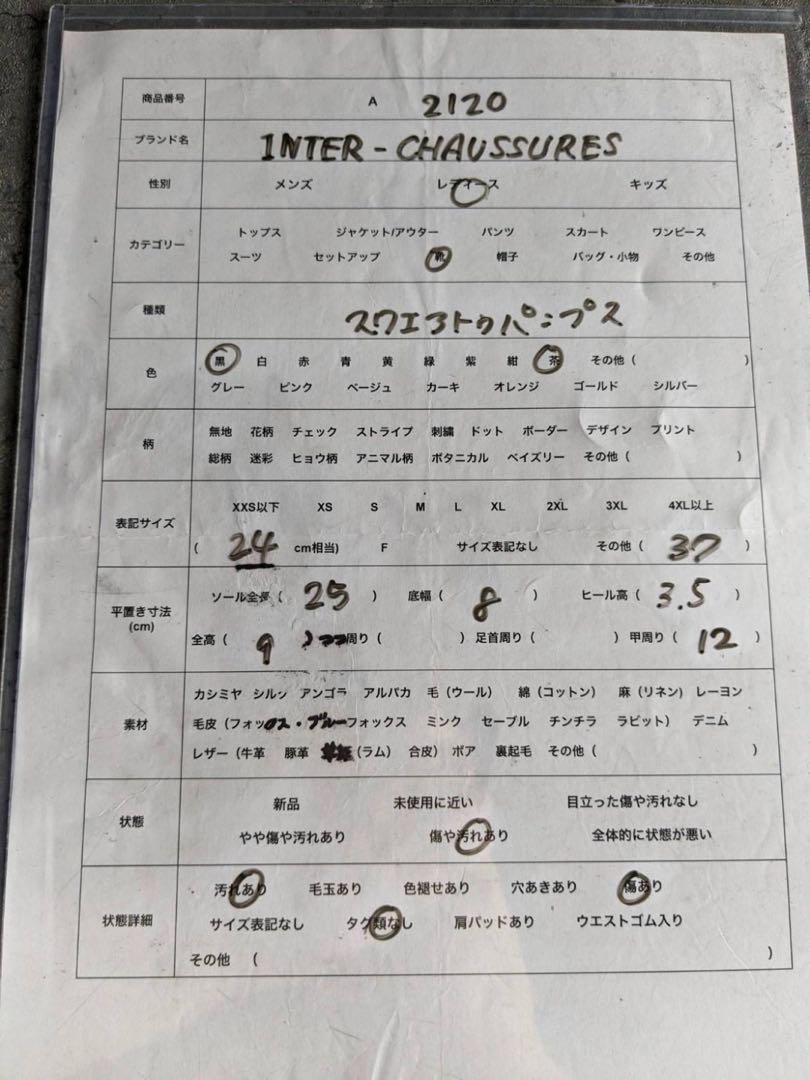 商品番号 A 2120
ブランド名 INTER-CHAUSSURES
性別 メンズ レディース キッズ
トップス ジャケット/アウター パンツ スカート ワンピース
カテゴリー
スーツ セットアップ 靴 帽子 バッグ・小物 その他
種類 スクエアトゥパンプス
黒 白 赤 青 黄 緑 紫 紺 茶 その他 ( )
色
グレー ピンク ベージュ カーキ オレンジ ゴールド シルバー
無地 花柄 チェック ストライプ 刺繍 ドット ボーダー デザイン プリント
柄
総柄 迷彩 ヒョウ柄 アニマル柄 ボタニカル ペイズリー その他 ( )
XXS以下 XS S M L XL 2XL 3XL 4XL以上
表記サイズ
( 24 cm相当) F サイズ表記なし その他 ( 37 )
ソール全長 ( 25 ) 底幅 ( 8 ) ヒール高 ( 3.5 )
平置き寸法
(cm)
全高 ( 9 ) 周り ( ) 足首周り ( ) 甲周り ( 12 )
カシミヤ シルク アンゴラ アルパカ 毛 (ウール) 綿 (コットン) 麻 (リネン) レーヨン
素材
毛皮 (フォックス・ブルーフォックス ミンク セーブル チンチラ ラビット) デニム
レザー (牛革 豚革 (ラム) 合皮) ボア 裏起毛 その他 ( )
新品 未使用に近い 目立った傷や汚れなし
状態
やや傷や汚れあり 傷や汚れあり 全体的に状態が悪い
汚れあり 毛玉あり 色褪せあり 穴あきあり 傷あり
状態詳細
サイズ表記なし タグ類なし 肩パッドあり ウエストゴム入り
その他 ( )